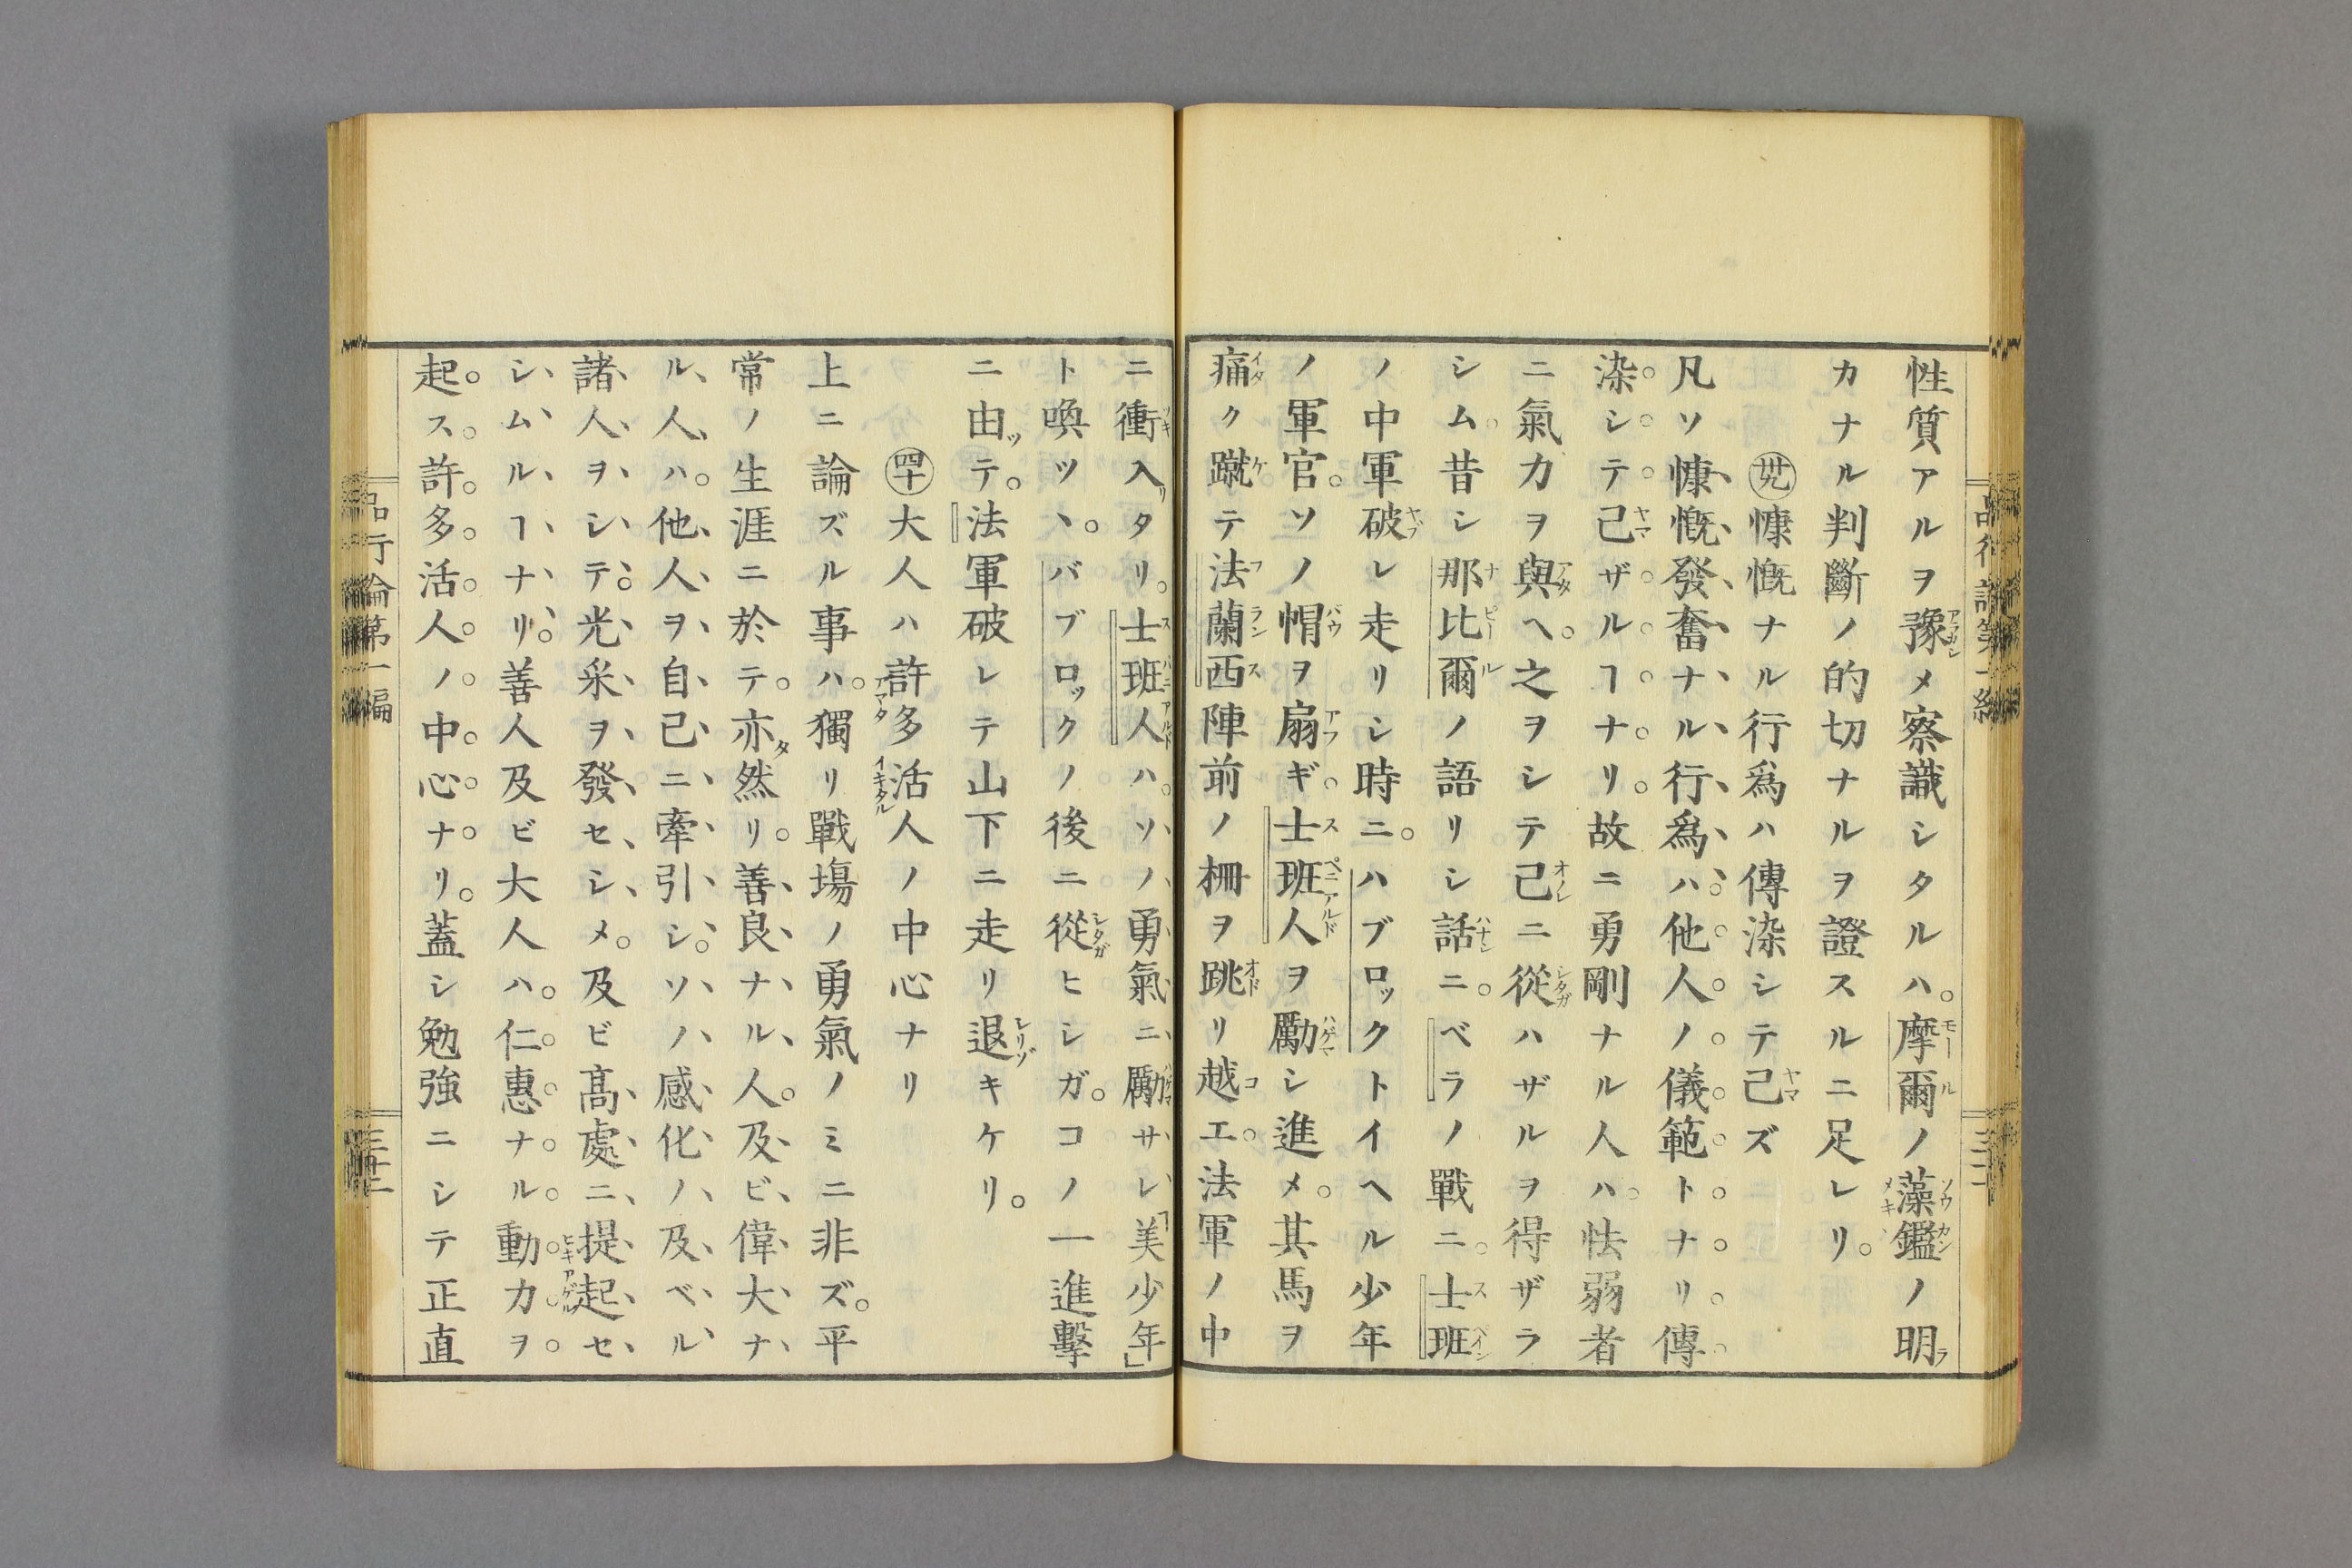 性質アルヲ豫メ察識シタルハ。摩爾ノ藻鑑ノ明
カナル判斷ノ的切ナルヲ證スルニ足レリ。
㊴慷慨ナル行爲ハ傳染シテ己ズ
凡ソ慷慨發奮ナル行爲ハ。他人ノ儀範トナリ傳
染シテ己ザルヿナリ。故ニ勇剛ナル人ハ。怯弱者
ニ氣力ヲ與ヘ。之ヲシテ己ニ從ハザルヲ得ザラ
シム。昔シ那比爾ノ語リシ話ニ。ベラノ戰ニ。士班
ノ中軍破レ走リシ時ニ。ハブロックトイヘル少年
ノ軍官。ソノ帽ヲ扇ギ。士班人ヲ勵シ進メ。其馬ヲ
痛ク蹴テ法蘭西陣前ノ柵ヲ跳リ越エ。法軍ノ中
ニ衝入タリ。士班人ハ。ソノ勇氣ニ勵サレ「美少年」
ト喚ツヽ。バブロックノ後ニ從ヒシガ。コノ一進擊
ニ由ッテ。法軍破レテ山下ニ走リ退キケリ。
㊵大人ハ許多活人ノ中心ナリ
上ニ論ズル事ハ。獨リ戰塲ノ勇氣ノミニ非ズ。平
常ノ生涯ニ於テ。亦然リ。善良ナル人。及ビ偉大ナ
ル人ハ。他人ヲ自己ニ牽引シ。ソノ感化ノ及ベル
諸人ヲシテ。光采ヲ發セシメ。及ビ髙處ニ提起セ
シムルヿナリ。善人及ビ大人ハ。仁惠ナル動力ヲ
起ス。許多活人ノ中心ナリ。蓋シ勉強ニシテ正直
品行論第一編
三十二